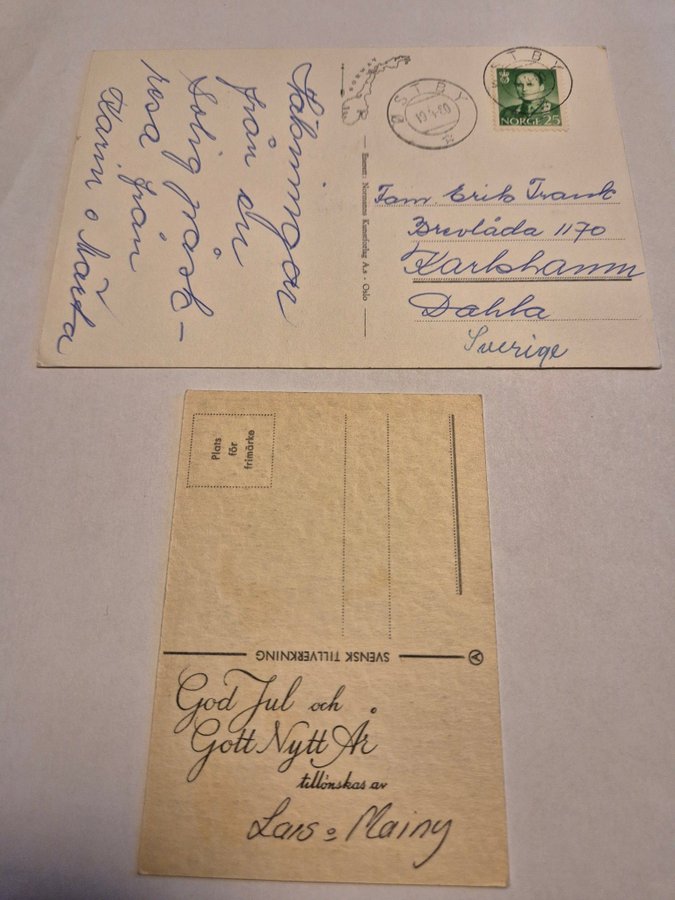 Hälsningar
från en
Solig påsk-
resa från
Karin o Märta
NORGE
Eneret: Normanns Kunstforlag A.s - Oslo
ØSTBY
ØSTBY
NORGE 25
Fam. Erik Franck
Brevlåda 1170
Karlshamn
Sverige
Plats
för
frimärke
SVENSK TILLVERKNING
God Jul och
Gott Nytt År
tillönskas av
Lars o Mainy